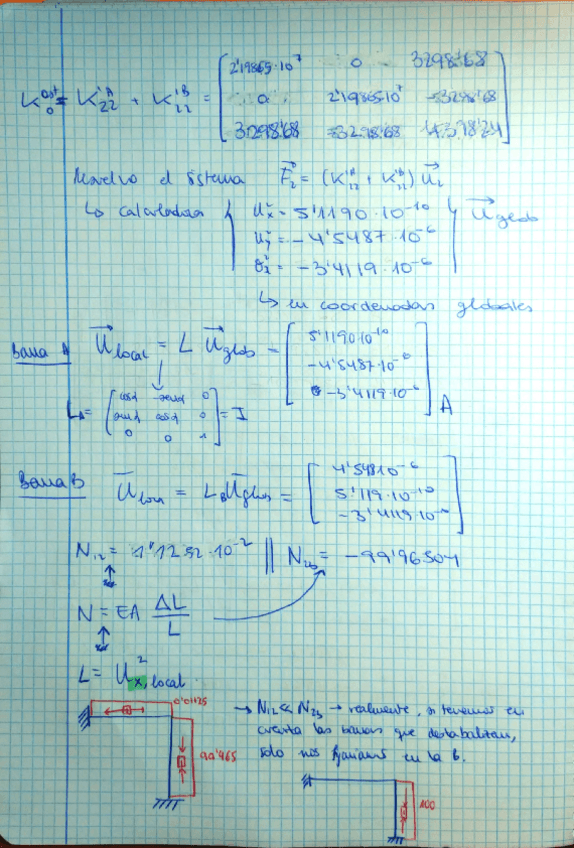 K₀^est = K₂₂'^A + K₁₁'^B = [ 2'19865·10⁷ 0 3298'68
0 2'19865·10⁷ -3298'68
3298'68 -3298'68 ]
Resuelvo el sistema F₂ = (K₂₂'^A + K₁₁'^B) u₂
↳ calculadora { Ux² = 5'1190·10⁻¹⁰ } U glob
Uy² = -4'5487·10⁻⁶
θz² = -3'4119·10⁻⁶
↳ en coordenadas globales
Barra A U local = L U glob = [ 5'1190·10⁻¹⁰
-4'5487·10⁻⁶
-3'4119·10⁻⁶ ] A
L_A = [ cosα -senα 0
senα cosα 0
0 0 1 ] = I
Barra B U local = L_B U glob = [ 4'548·10⁻⁶
5'119·10⁻¹⁰
-3'4119·10⁻⁶ ]
N₁₂ = 1'1252·10⁻² || N₂₃ = -99'96504
N = EA ΔL/L
L = Ux² , local
0'01125
99'965
→ N₁₂ << N₂₃ → realmente, si tenemos en
cuenta las barras que desestabilizan,
solo nos fijamos en la B.
100